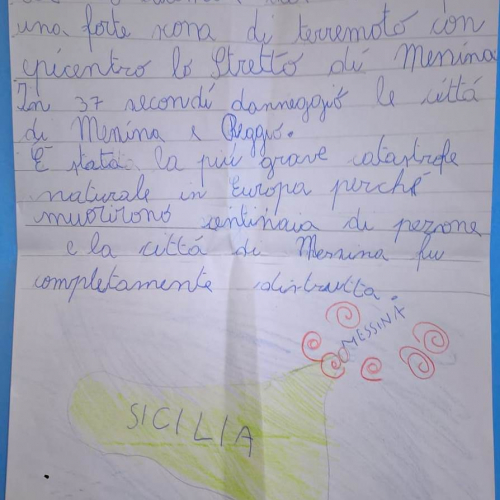 una forte scossa di terremoto con
epicentro lo Stretto di Messina
In 37 secondi danneggiò le cittá
di Messina e Reggio.
É stata la piú grave catastrofe
naturale in Europa perché
muotirono centinaia di persone
e la cittá di Messina fu
completamente distrutta.
MESSINA
SICILIA